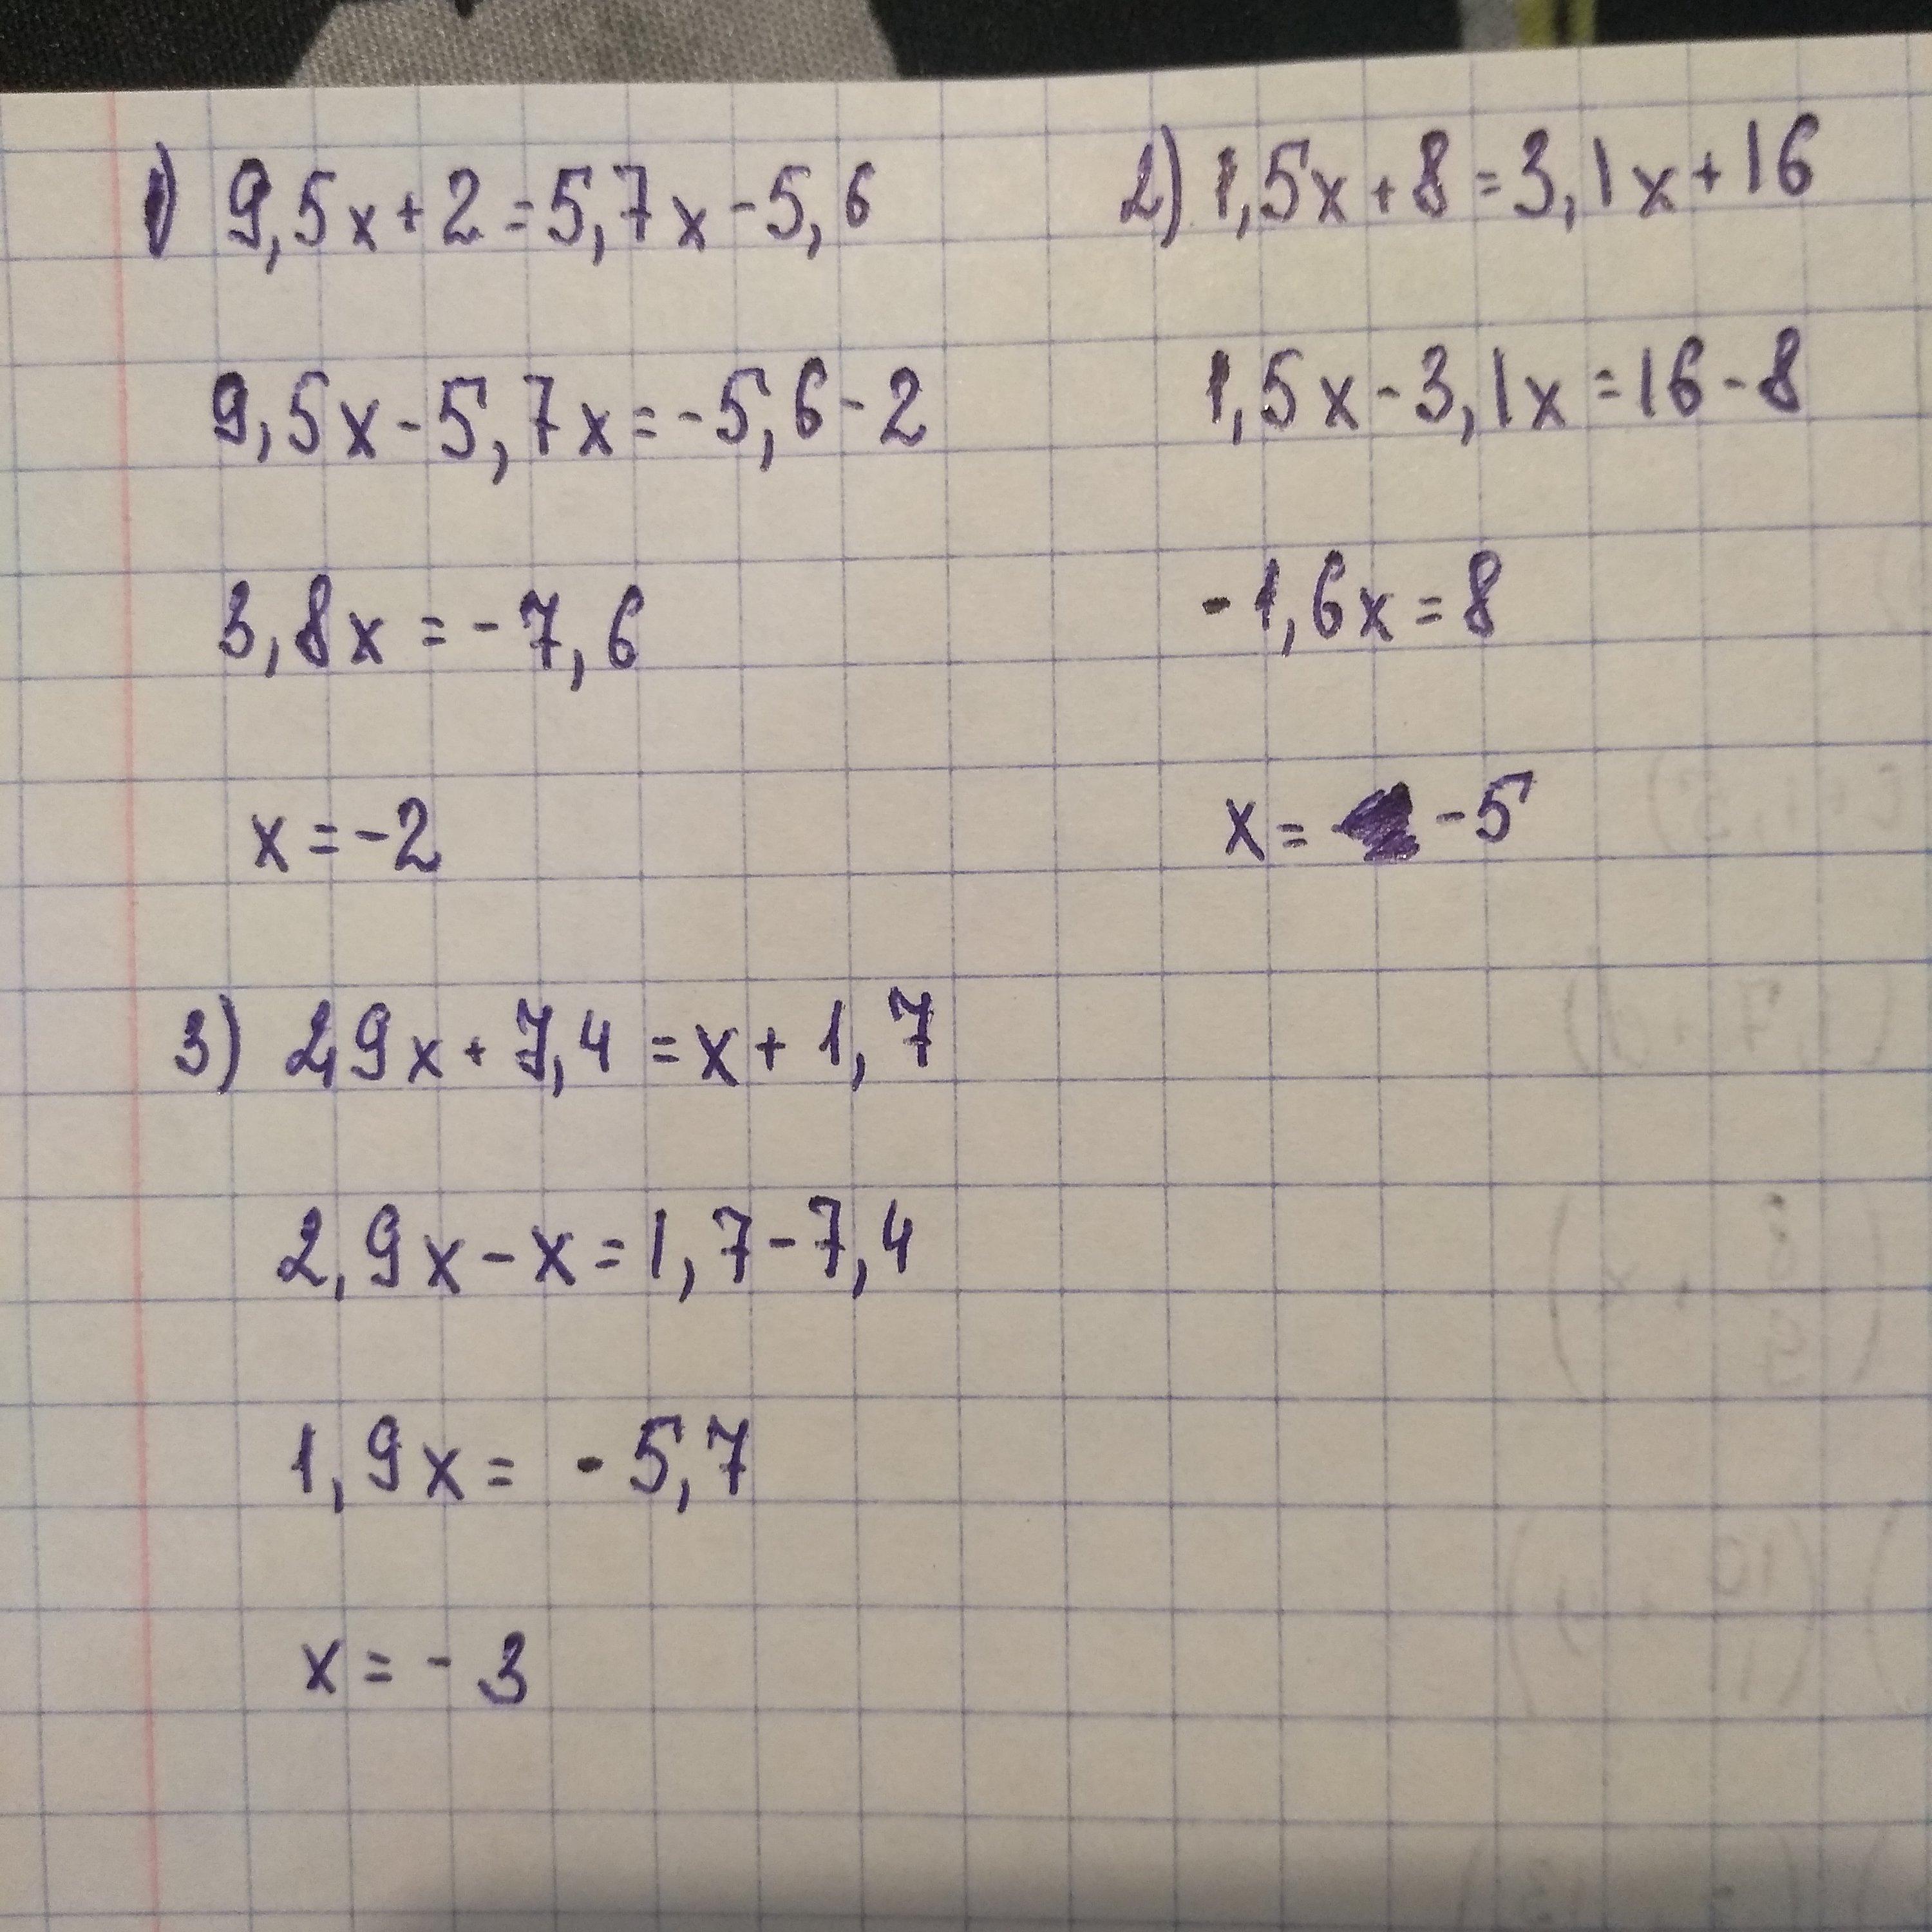 1) 9,5x+2=5,7x-5,6
9,5x-5,7x=-5,6-2
3,8x=-7,6
x=-2
2) 1,5x+8=3,1x+16
1,5x-3,1x=16-8
-1,6x=8
x= -5
3) 2,9x+7,4=x+1,7
2,9x-x=1,7-7,4
1,9x= -5,7
x=-3